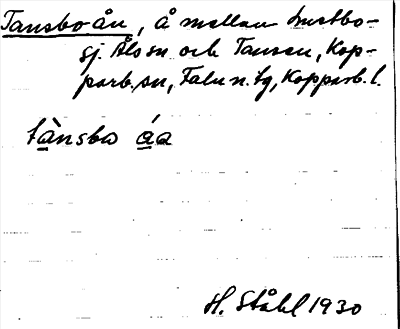 Tansboån, å mellan Lustbo-
sj. Ålsen och Tansen, Kop-
parb. sn, Falu n. tg, Kopparb. l.
tànsbo áa
H. Ståhl 1930